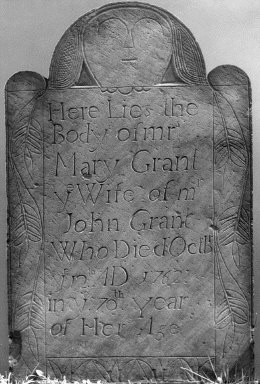 Here Lies the
Body of mrs
Mary Grant
ye Wife of mr
John Grant
Who Died Octbr
AD 1762
in ye 70th year
of Her Age